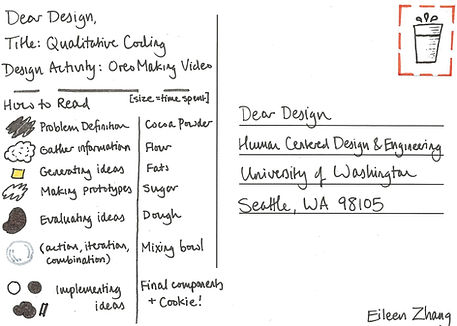 Dear Design,
Title: Qualitative Coding
Design Activity: Oreo Making Video
How to Read [size = time spent]
Problem Definition Cocoa Powder
Gather information Flour
Generating ideas Fats
Making prototypes Sugar
Evaluating ideas Dough
(action, iteration, combination) Mixing bowl
Implementing ideas Final components + Cookie!
Dear Design
Human Centered Design & Engineering
University of Washington
Seattle, WA 98105
Eileen Zhang